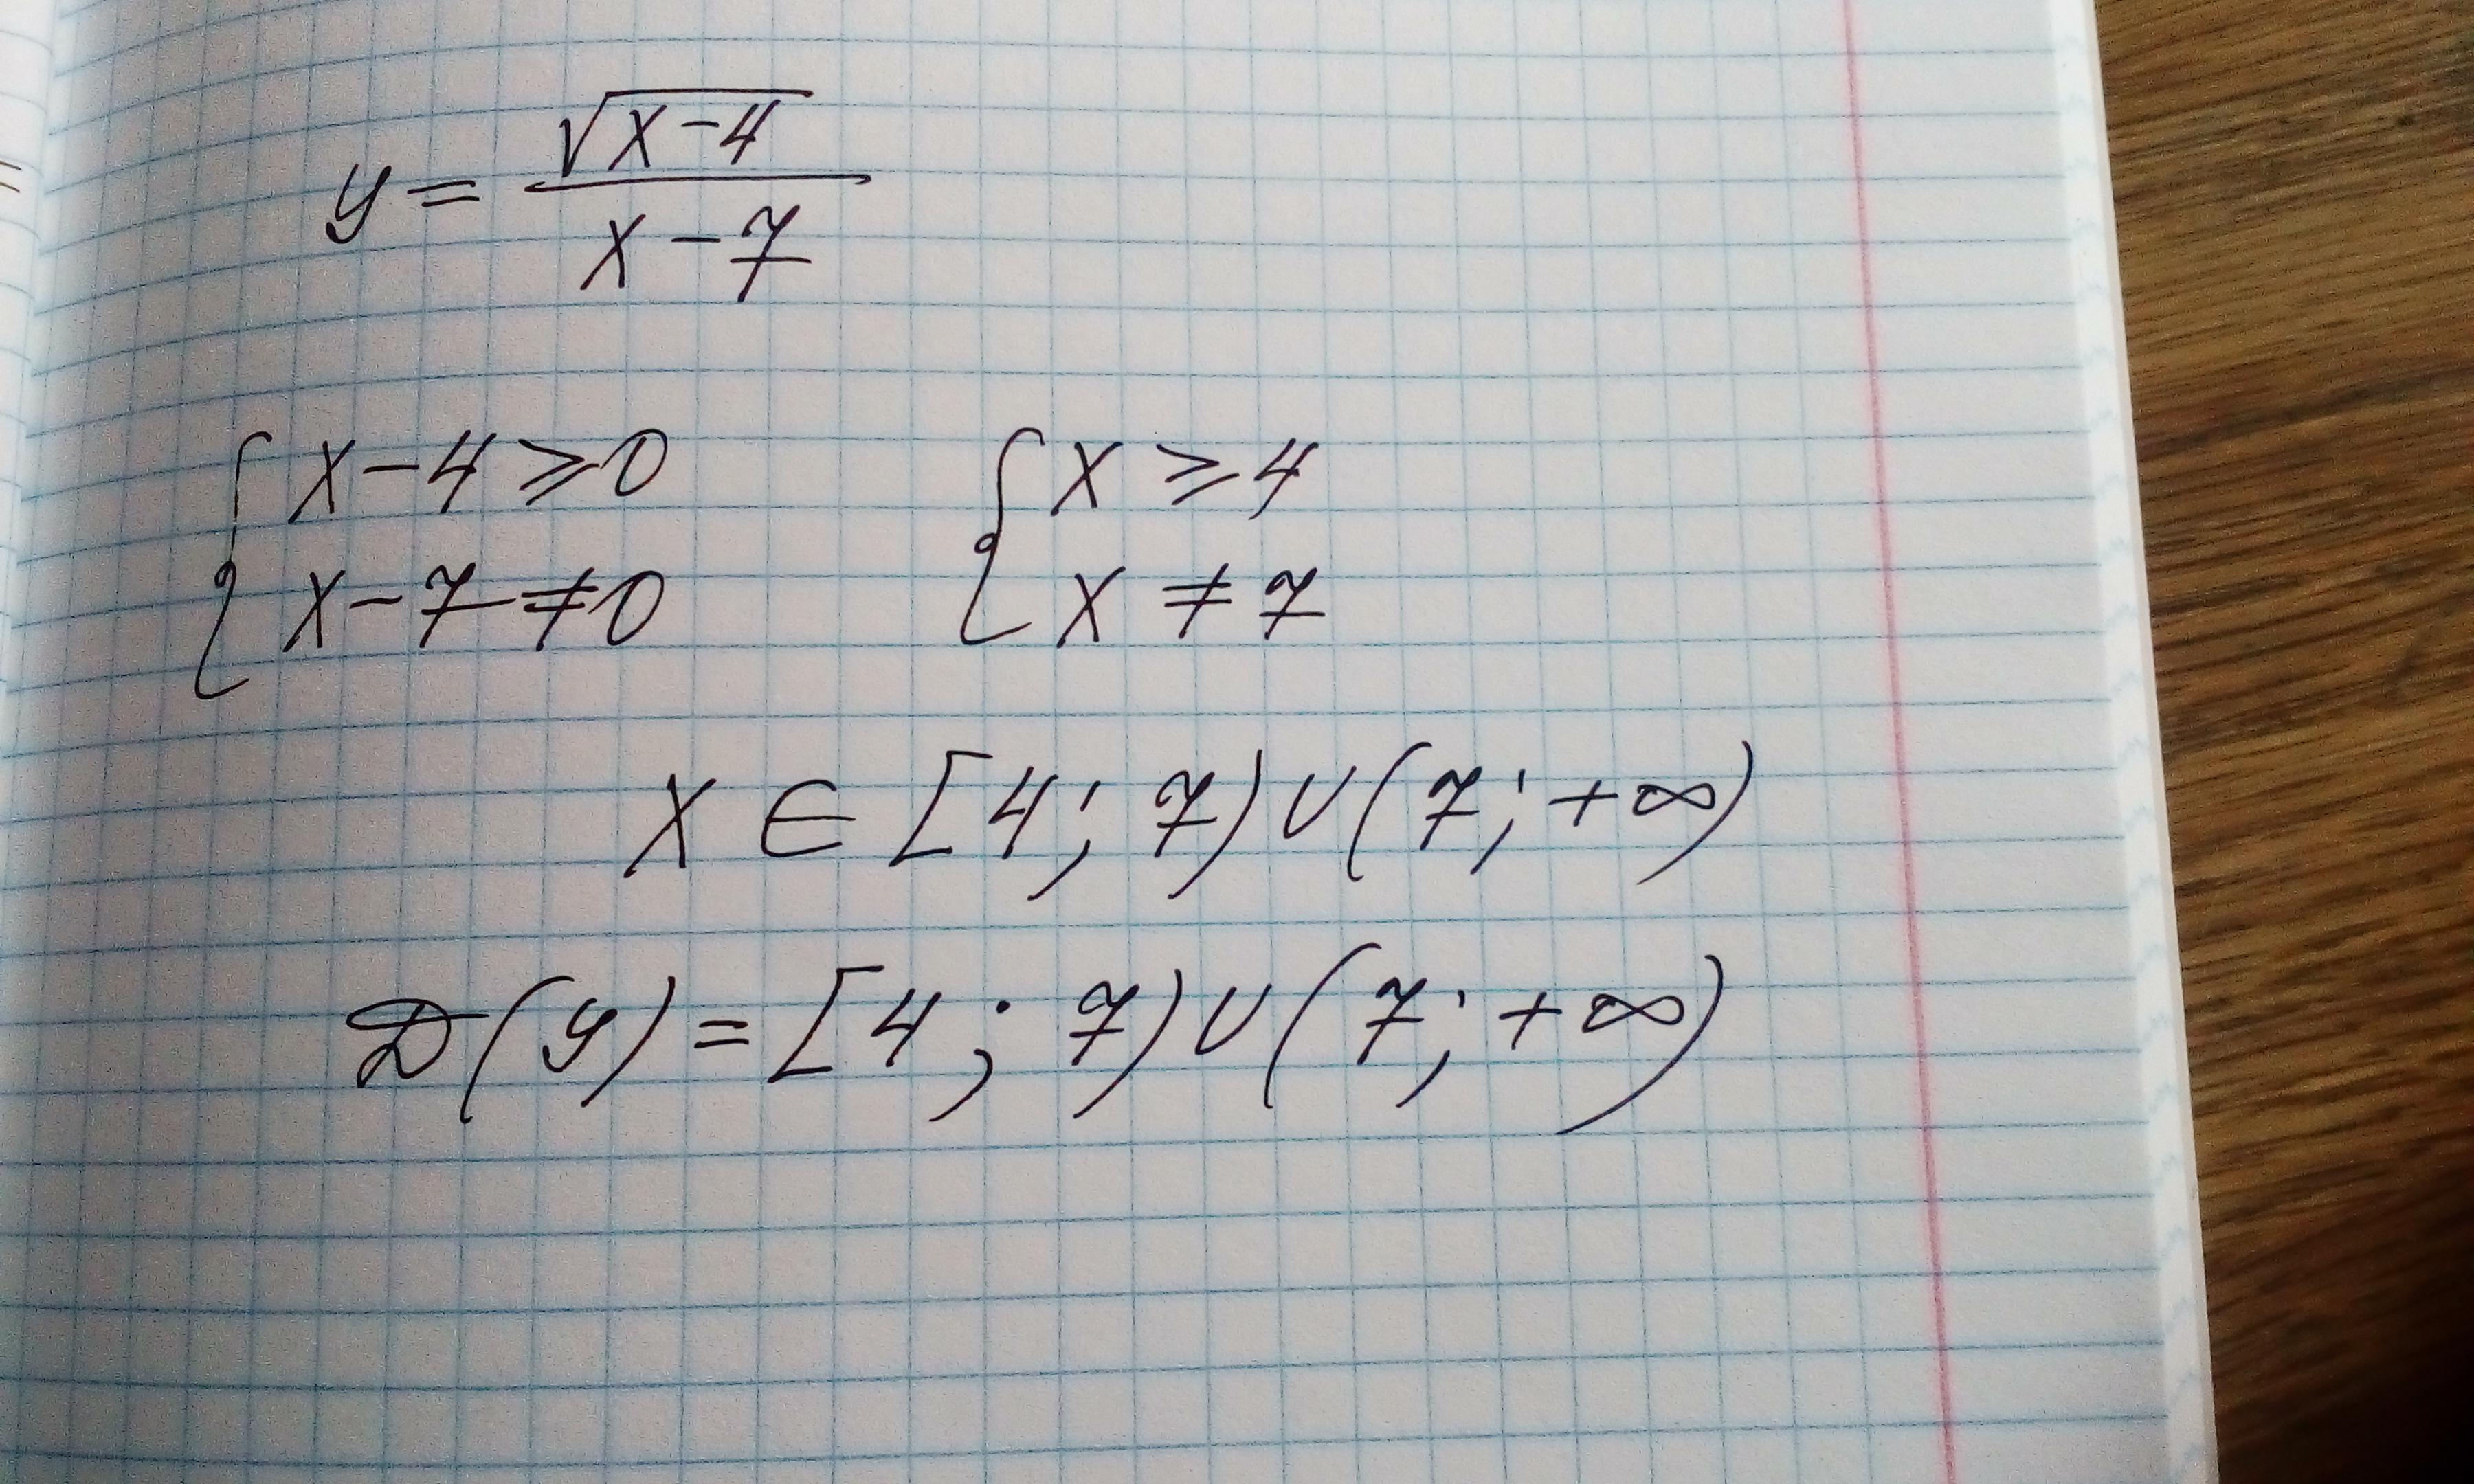 y = √(x-4) / (x-7)
{ x-4 ⩾ 0 { x ⩾ 4
{ x-7 ≠ 0 { x ≠ 7
x ∈ [4; 7) ∪ (7; +∞)
D(y) = [4; 7) ∪ (7; +∞)